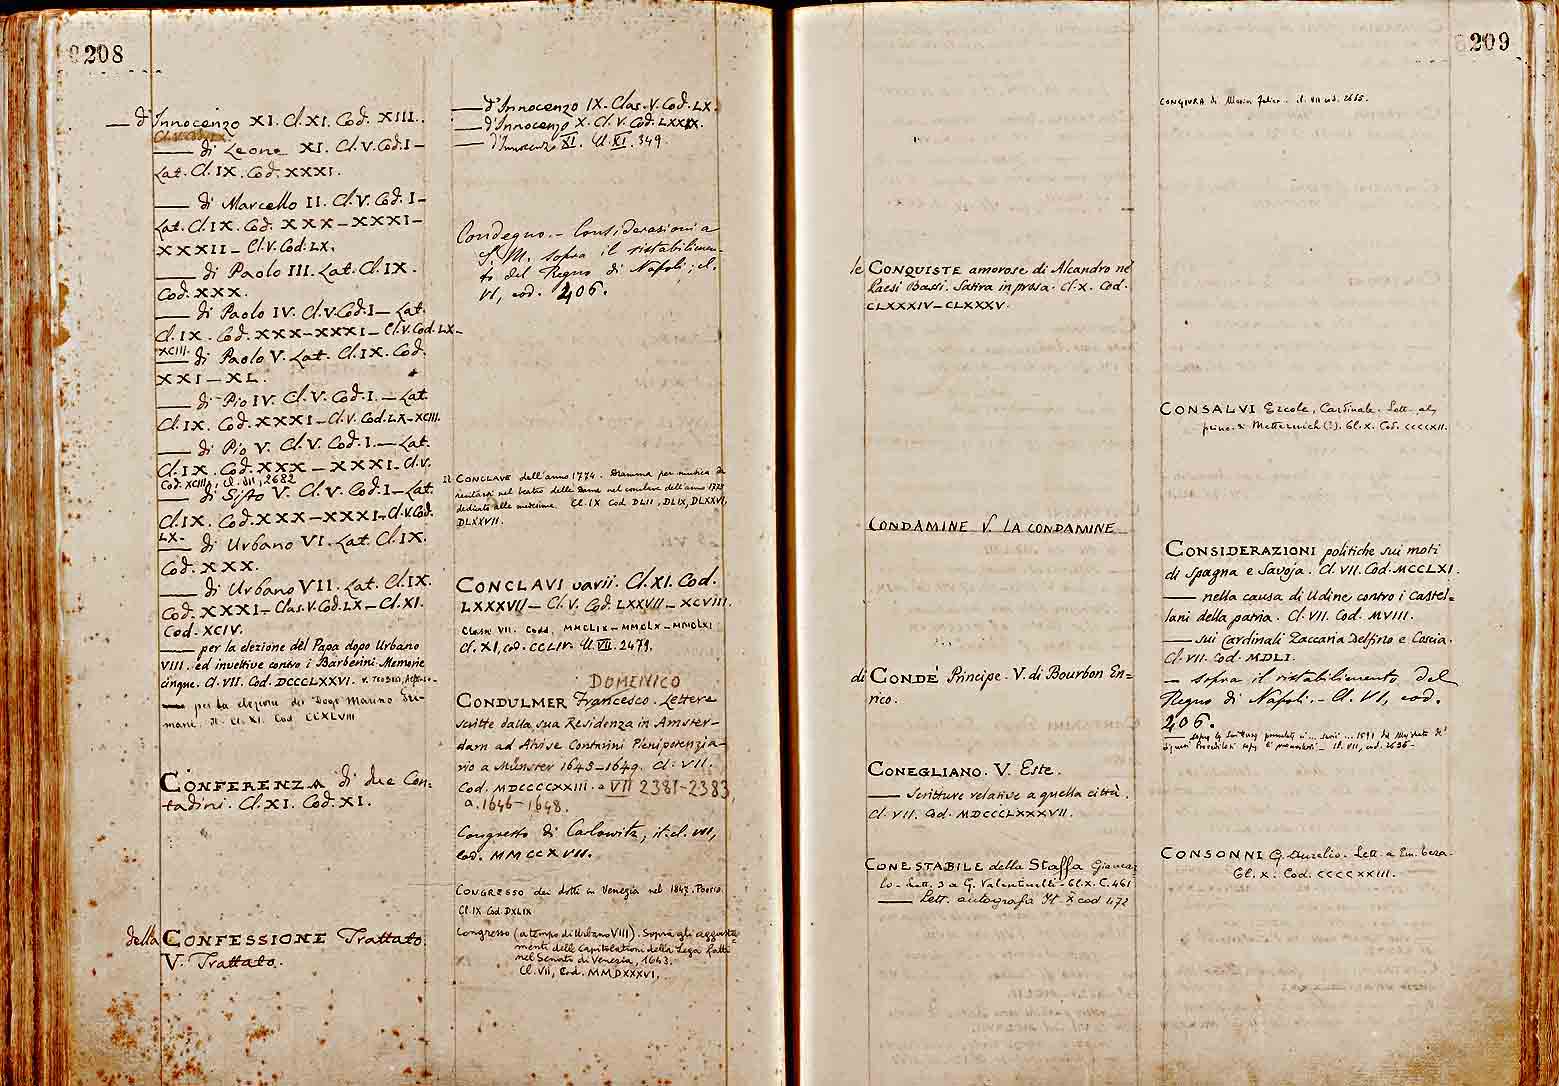 208
— d'Innocenzo XI. Cl. XI. Cod. XIII.
— di Leone XI. Cl. V. Cod. I —
Lat. Cl. IX. Cod. XXXI.
— di Marcello II. Cl. V. Cod. I —
Lat. Cl. IX. Cod. XXX — XXXI —
XXXII — Cl. V. Cod. LX.
— di Paolo III. Lat. Cl. IX.
Cod. XXX.
— di Paolo IV. Cl. V. Cod. I — Lat.
Cl. IX. Cod. XXX — XXXI — Cl. V. Cod. LX —
XCIII.
— di Paolo V. Lat. Cl. IX. Cod.
XXI — XL.
— di Pio IV. Cl. V. Cod. I. — Lat.
Cl. IX. Cod. XXXI — Cl. V. Cod. LX — XCIII.
— di Pio V. Cl. V. Cod. I. — Lat.
Cl. IX. Cod. XXX — XXXI — Cl. V.
Cod. XCIII, Cl. VII, 2682
— di Sisto V. Cl. V. Cod. I — Lat.
Cl. IX. Cod. XXX — XXXI — Cl. V. Cod.
LX —
— di Urbano VI. Lat. Cl. IX.
Cod. XXX.
— di Urbano VII. Lat. Cl. IX.
Cod. XXXI — Clas. V. Cod. LX — Cl. XI.
Cod. XCIV.
— per la elezione del Papa dopo Urbano
VIII. ed invettive contro i Barberini. Memorie
cinque. Cl. VII. Cod. DCCCLXXVI.
— per la elezione del Doge Marino Gri-
mani. It. Cl. XI. Cod. CCXLVIII
CONFERENZA di due Con-
tadini. Cl. XI. Cod. XI.
della CONFESSIONE Trattato.
V. Trattato.
— d'Innocenzo IX. Clas. V. Cod. LX.
— d'Innocenzo X. Cl. V. Cod. LXXIX.
— d'Innocenzo XI. Cl. XI. 349.
Condegno. — Considerazioni a
S. M. sopra il ristabilimen-
to del Regno di Napoli; cl.
VI, cod. 206.
Il CONCLAVE dell'anno 1774. Dramma per musica da
recitarsi nel teatro delle Dame nel conclave dell'anno 1775
dedicato alle medesime. Cl. IX Cod DLII, DLIX, DLXXVI,
DLXXVII.
CONCLAVI varii. Cl. XI. Cod.
LXXXVII — Cl. V. Cod. LXXVII — XCVIII.
Classe VII. Codd. MMCLIX — MMCLX — MMCLXI
Cl. XI, cod. CCLIV. Cl. VII. 2479.
DOMENICO
CONDULMER Francesco. Lettere
scritte dalla sua Residenza in Amster-
dam ad Alvise Contarini Plenipotenzia-
rio a Münster 1645–1649. Cl. VII.
Cod. MDCCCCXXIII. e VII 2381–2383,
a. 1646–1648.
Congresso di Carlowitz, it. cl. VII,
cod. MMCCXVII.
CONGRESSO dei dotti in Venezia nel 1847. Poesia.
Cl. IX Cod. DXLIX
Congresso (a tempo di Urbano VIII). Sopra gli aggiusta-
menti delle Capitolationi della Lega fatti
nel Senato di Venezia, 1643.
Cl. VII, Cod. MMDXXXVI.
209
le CONQUISTE amorose di Alcandro ne'
Paesi Bassi. Satira in prosa. Cl. X. Cod.
CLXXXIV — CLXXXV.
CONDAMINE V. LA CONDAMINE
di CONDÈ Principe. V. di Bourbon En-
rico.
CONEGLIANO. V. Este.
— Scritture relative a quella città.
Cl. VII. Cod. MDCCCLXXXVII.
CONESTABILE della Staffa Giancar
lo — Lett. 3 a G. Valentinelli — Cl. X. C. 461
— Lett. autografa It X cod 472
CONGIURA di Marin Falier. it. VII cod. 2655.
CONSALVI Ercole, Cardinale. Lett. al
princ. Metternich (?). Cl. X. Cod. CCCCXII.
CONSIDERAZIONI politiche sui moti
di Spagna e Savoja. Cl. VII. Cod. MCCLXI.
— nella causa di Udine contro i Castel-
lani della patria. Cl. VII. Cod. MVIII.
— sui Cardinali Zaccaria Delfino e Cascia.
Cl. VII. Cod. MDLI.
— sopra il ristabilimento del
Regno di Napoli. — Cl. VI, cod.
206.
CONSONNI G. Aurelio. Lett. a Em. Cicogna.
Cl. X. Cod. CCCCXXIII.